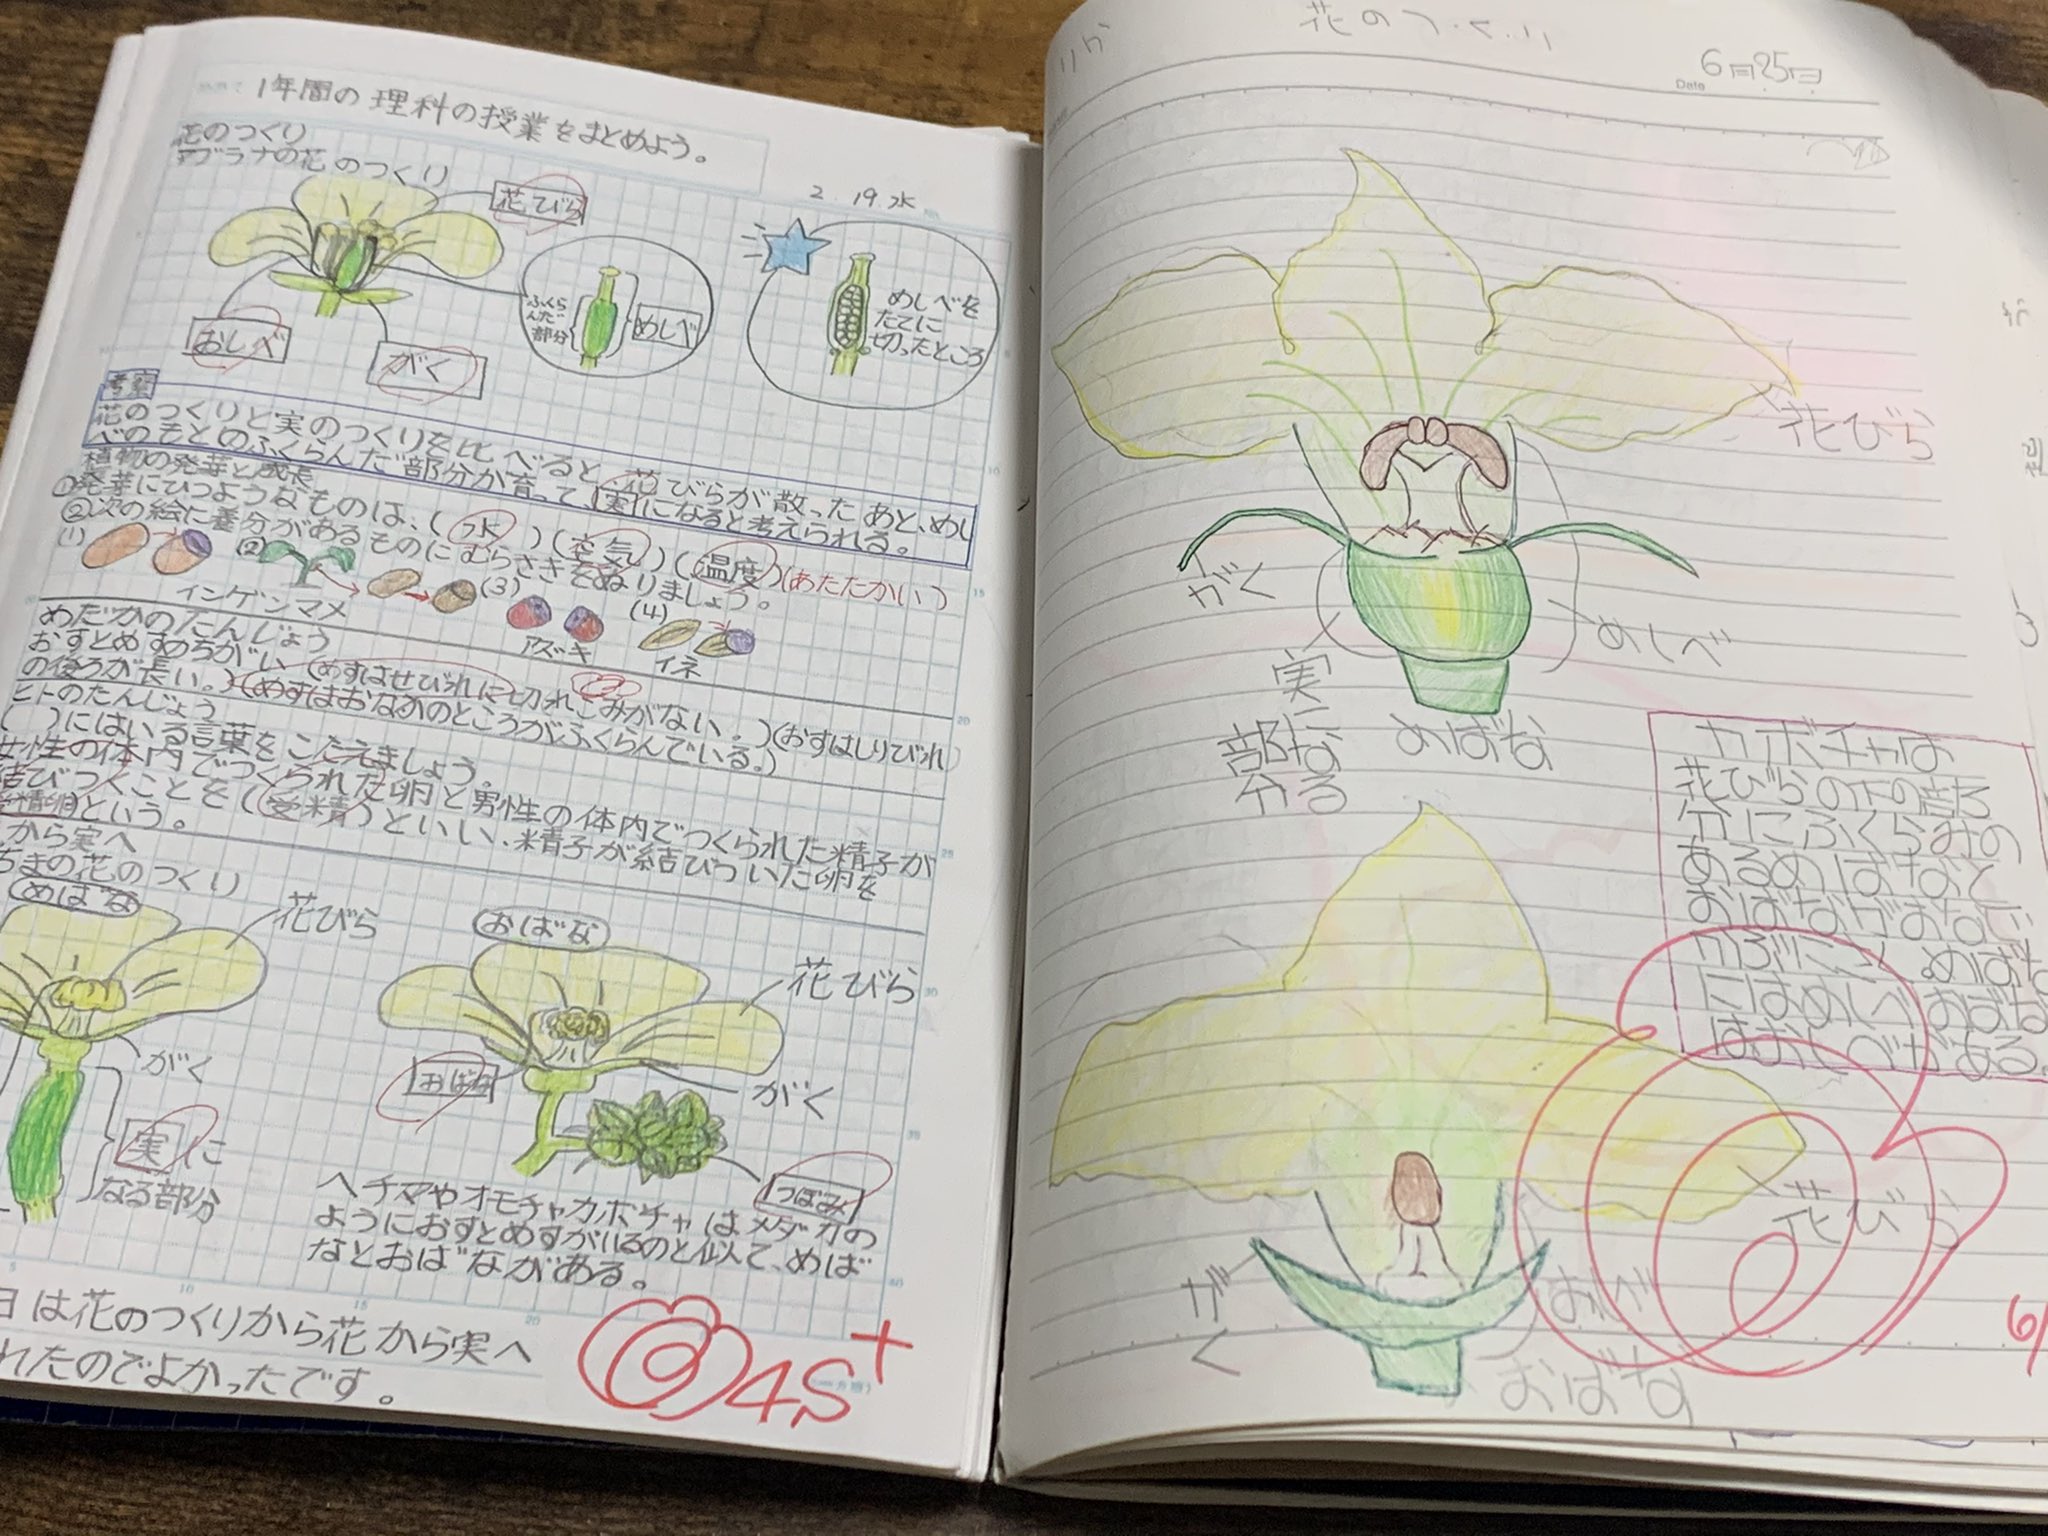 1年間の理科の授業をまとめよう。
花のつくり
アブラナの花のつくり
2 19 水
花びら
おしべ
がく
ふくら
んだ
部分
めしべ
めしべを
たてに
切ったところ
考察
花のつくりと実のつくりを比べると、花びらが散ったあと、めし
べのもとのふくらんだ部分が育って、実になると考えられる。
植物の発芽と成長
①発芽にひつようなものは、(水)(空気)(温度)(あたたかい)
②次の絵に養分があるものにむらさきをぬりましょう。
(1)
(2)
(3)
(4)
インゲンマメ
アズキ
イネ
めだかのたんじょう
おすとめすのちがい(めすはせびれに切れこみがない。)(おすはしりびれ
の後ろが長い。)(めすはおなかのところがふくらんでいる。)
ヒトのたんじょう
( )にはいる言葉をこたえましょう。
女性の体内でつくられた卵と男性の体内でつくられた精子が
結びつくことを(受精)といい、精子が結びついた卵を
受精卵という。
から実へ
ちまの花のつくり
めばな
花びら
がく
実に
なる部分
おばな
花びら
おばな
がく
つぼみ
ヘチマやオモチャカボチャはメダカの
ようにおすとめすがいるのと似て、めば
なとおばながある。
日は花のつくりから花から実へ
れたのでよかったです。
4S+
りか
花のつくり
Date 6月25日
花びら
がく
めしべ
実に
なる
部分
めばな
カボチャは
花びらの下の部
分にふくらみの
あるめばなと
おばながおなじ
かぶにさく。めばな
にはめしべ、おばな
はおしべがある。
花びら
がく
おしべ
おばな
6/